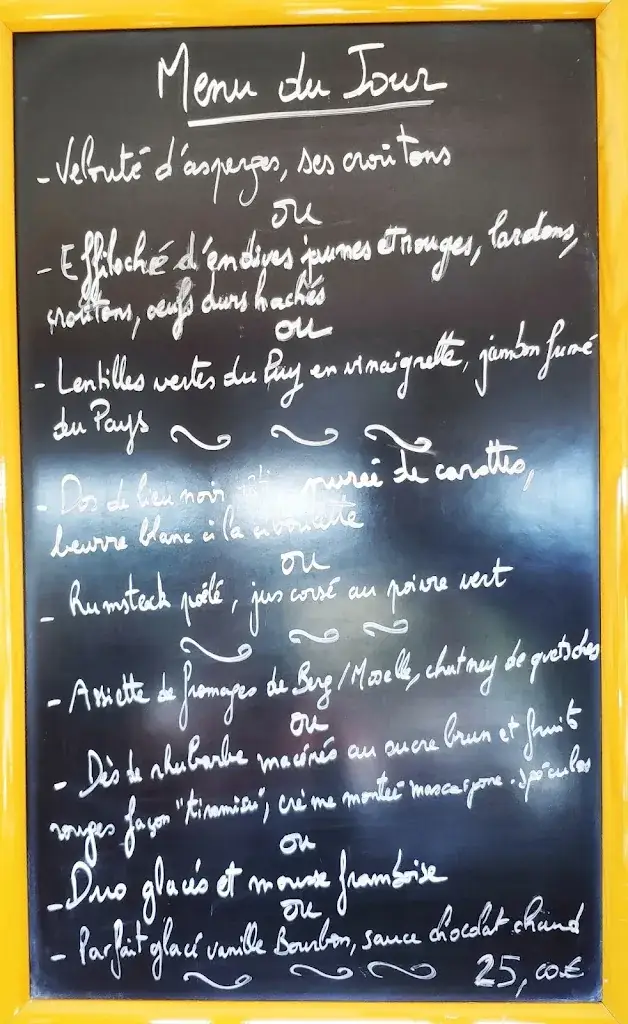 Menu du Jour
- Velouté d'asperges, ses croûtons
ou
- Effiloché d'endives jaunes et rouges, lardons,
croûtons, oeufs durs hachés
ou
- Lentilles vertes du Puy en vinaigrette, jambon fumé
du Pays
- Dos de lieu noir purée de carottes,
beurre blanc à la ciboulette
ou
- Rumsteck poêlé, jus corsé au poivre vert
- Assiette de fromages de Berg/Moselle, chutney de quetsches
ou
- Dès de rhubarbe macérés au sucre brun et fruits
rouges façon "tiramisu", crème montée mascarpone. spéculos
ou
- Duo glacés et mousse framboise
ou
- Parfait glacé vanille Bourbon, sauce chocolat chaud
25,00€